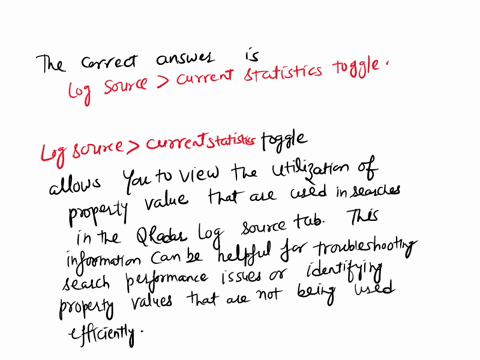 The correct answer is
Log Source > current statistics toggle.
Log source > current statistics toggle
allows you to view the utilization of
property value that are used in searches
in the QRadar Log Source tab. This
information can be helpful for troubleshooting
search performance issues or identifying
property values that are not being used
efficiently.